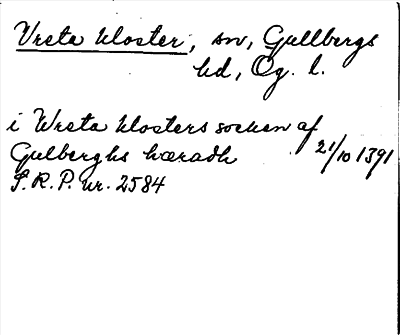 Vreta kloster, sn, Gullbergs
hd, Ög. l.
i Wreta klosters socken af
Gulberghs hæradh 21/10 1391
S. R. P. nr. 2584